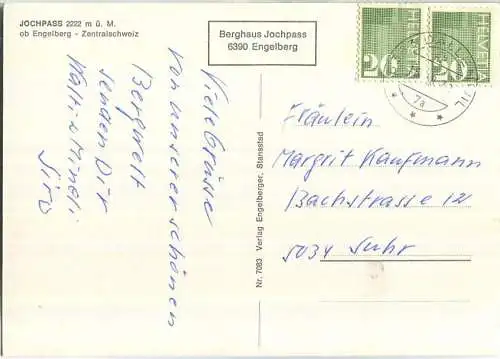 JOCHPASS 2222 m ü. M.
ob Engelberg - Zentralschweiz
Berghaus Jochpass
6390 Engelberg
Viele Grüsse
von unserer schönen
Bergwelt
senden Dir
Walti + Mindi
Nr. 7083 Verlag Engelberger, Stansstad
HELVETIA
20
HELVETIA
20
7a
Fräulein
Margrit Kaufmann
Bachstrasse 12
5034 Suhr